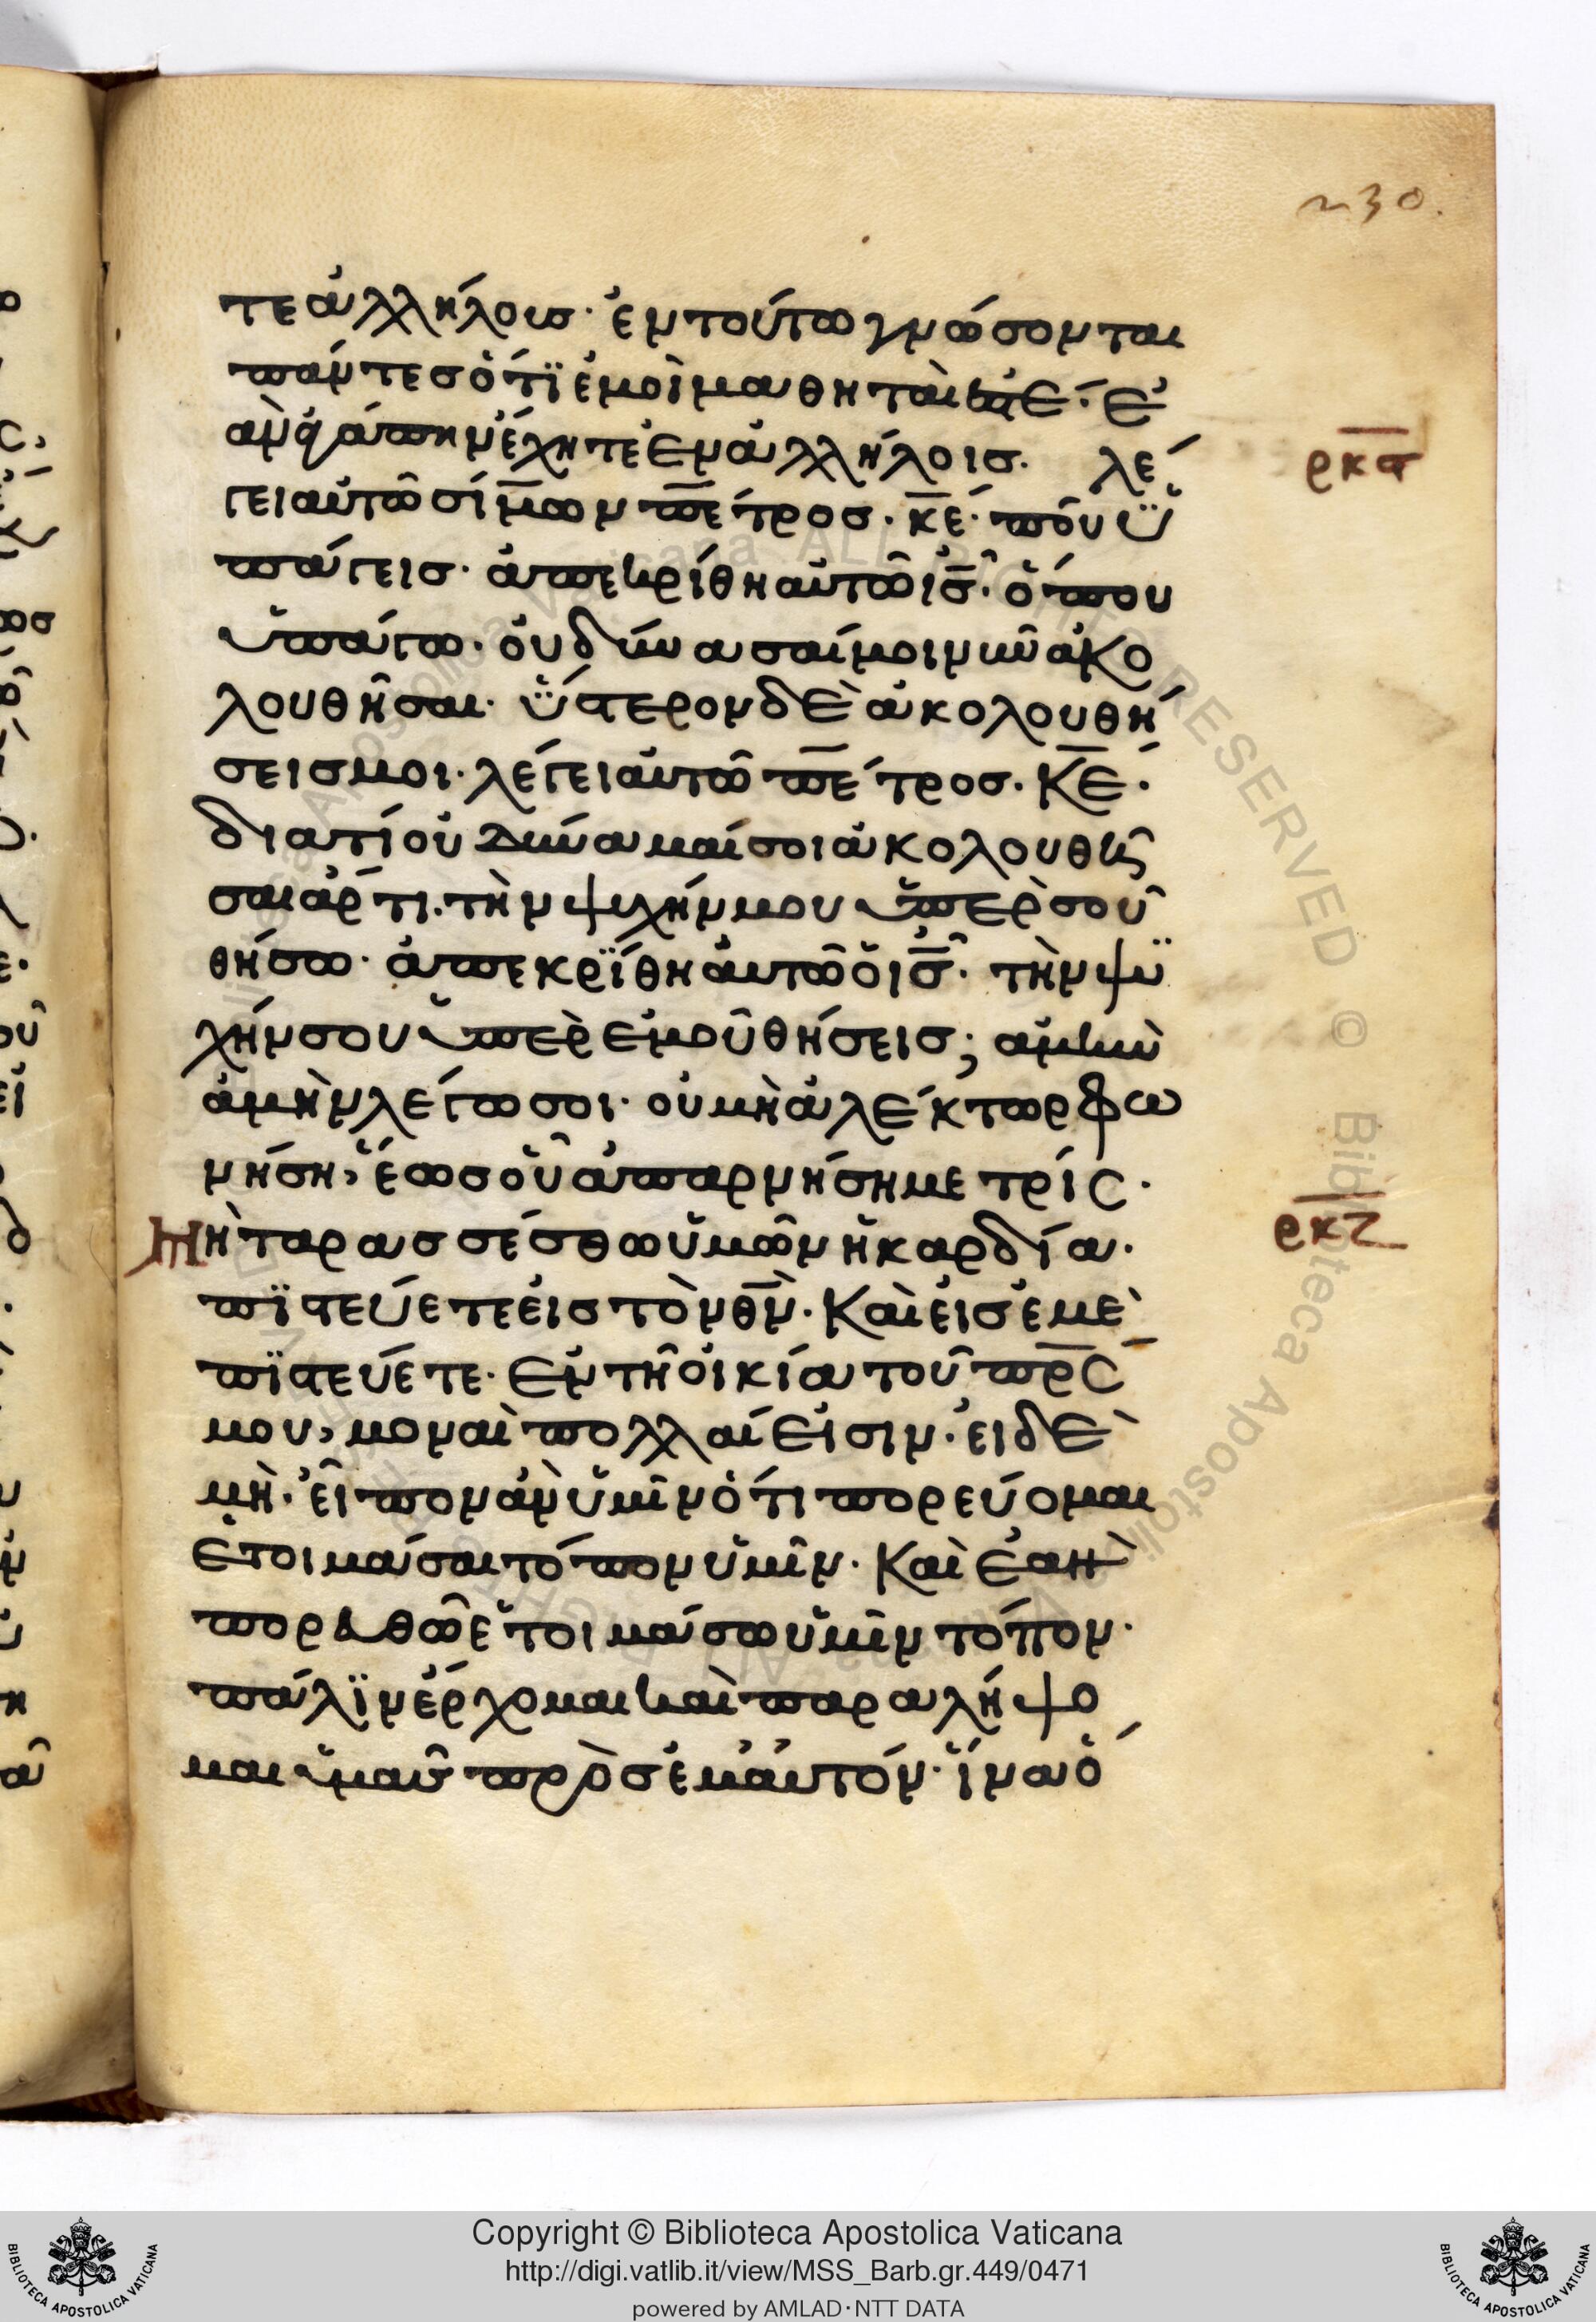 230.
τε ἀλλήλοις· ἐν τούτω γνώσονται
πάντες ὅτϊ ἐμοὶ μαθηταὶ ἐστέ· ἐ
ὰν ἀγάπην ἔχητε ἐν ἀλλήλοις. λέ
ρκϛ
γει αὐτῶ σίμων πέτρος. κε· ποῦ ὑ
πάγεις· ἀπεκρίθη αὐτῶ ις· ὅπου
ὑπάγω· οὐ δύνασαί μοι νῦν ἀκο
λουθῆσαι· ὕστερον δὲ ἀκολουθή
σεις μοι· λέγει αὐτῶ πέτρος. κε·
διατί οὐ δύναμαί σοι ἀκολουθῆ
σαι ἄρτι. τὴν ψυχήν μου ὑπὲρ σοῦ
θήσω· ἀπεκρϊίθη αὐτῶ ὁ ις· τὴν ψυ
χήν σου ὑπὲρ ἐμοῦ θήσεις; ἀμὴν
ἀμὴν λέγω σοι· οὐ μὴ ἀλέκτωρ φω
νήση, ἕως οὗ ἀπαρνήση με τρίς·
Μὴ ταρασσέσθω ὑμῶν ἡ καρδία·
ρκζ
πϊστεύετε εἰς τὸν θν· Καὶ εἰς ἐμὲ
πϊστεύετε· ἐν τῆ οἰκία του πρς
μου, μοναὶ πολλαί εἰσιν· εἰ δὲ
μὴ· εἶπον ἂν ὑμῖν ὅτι πορεύομαι
ἑτοιμάσαι τόπον ὑμῖν· Καὶ ἐὰν
πορευθῶ ἑτοιμάσω ὑμῖν τόπον·
πάλϊν ἔρχομαι καὶ παραλήψο
μαι ὑμᾶς πρὸς ἐμαυτόν· ἵνα ὅ
Copyright © Biblioteca Apostolica Vaticana
http://digi.vatlib.it/view/MSS_Barb.gr.449/0471
powered by AMLAD·NTT DATA